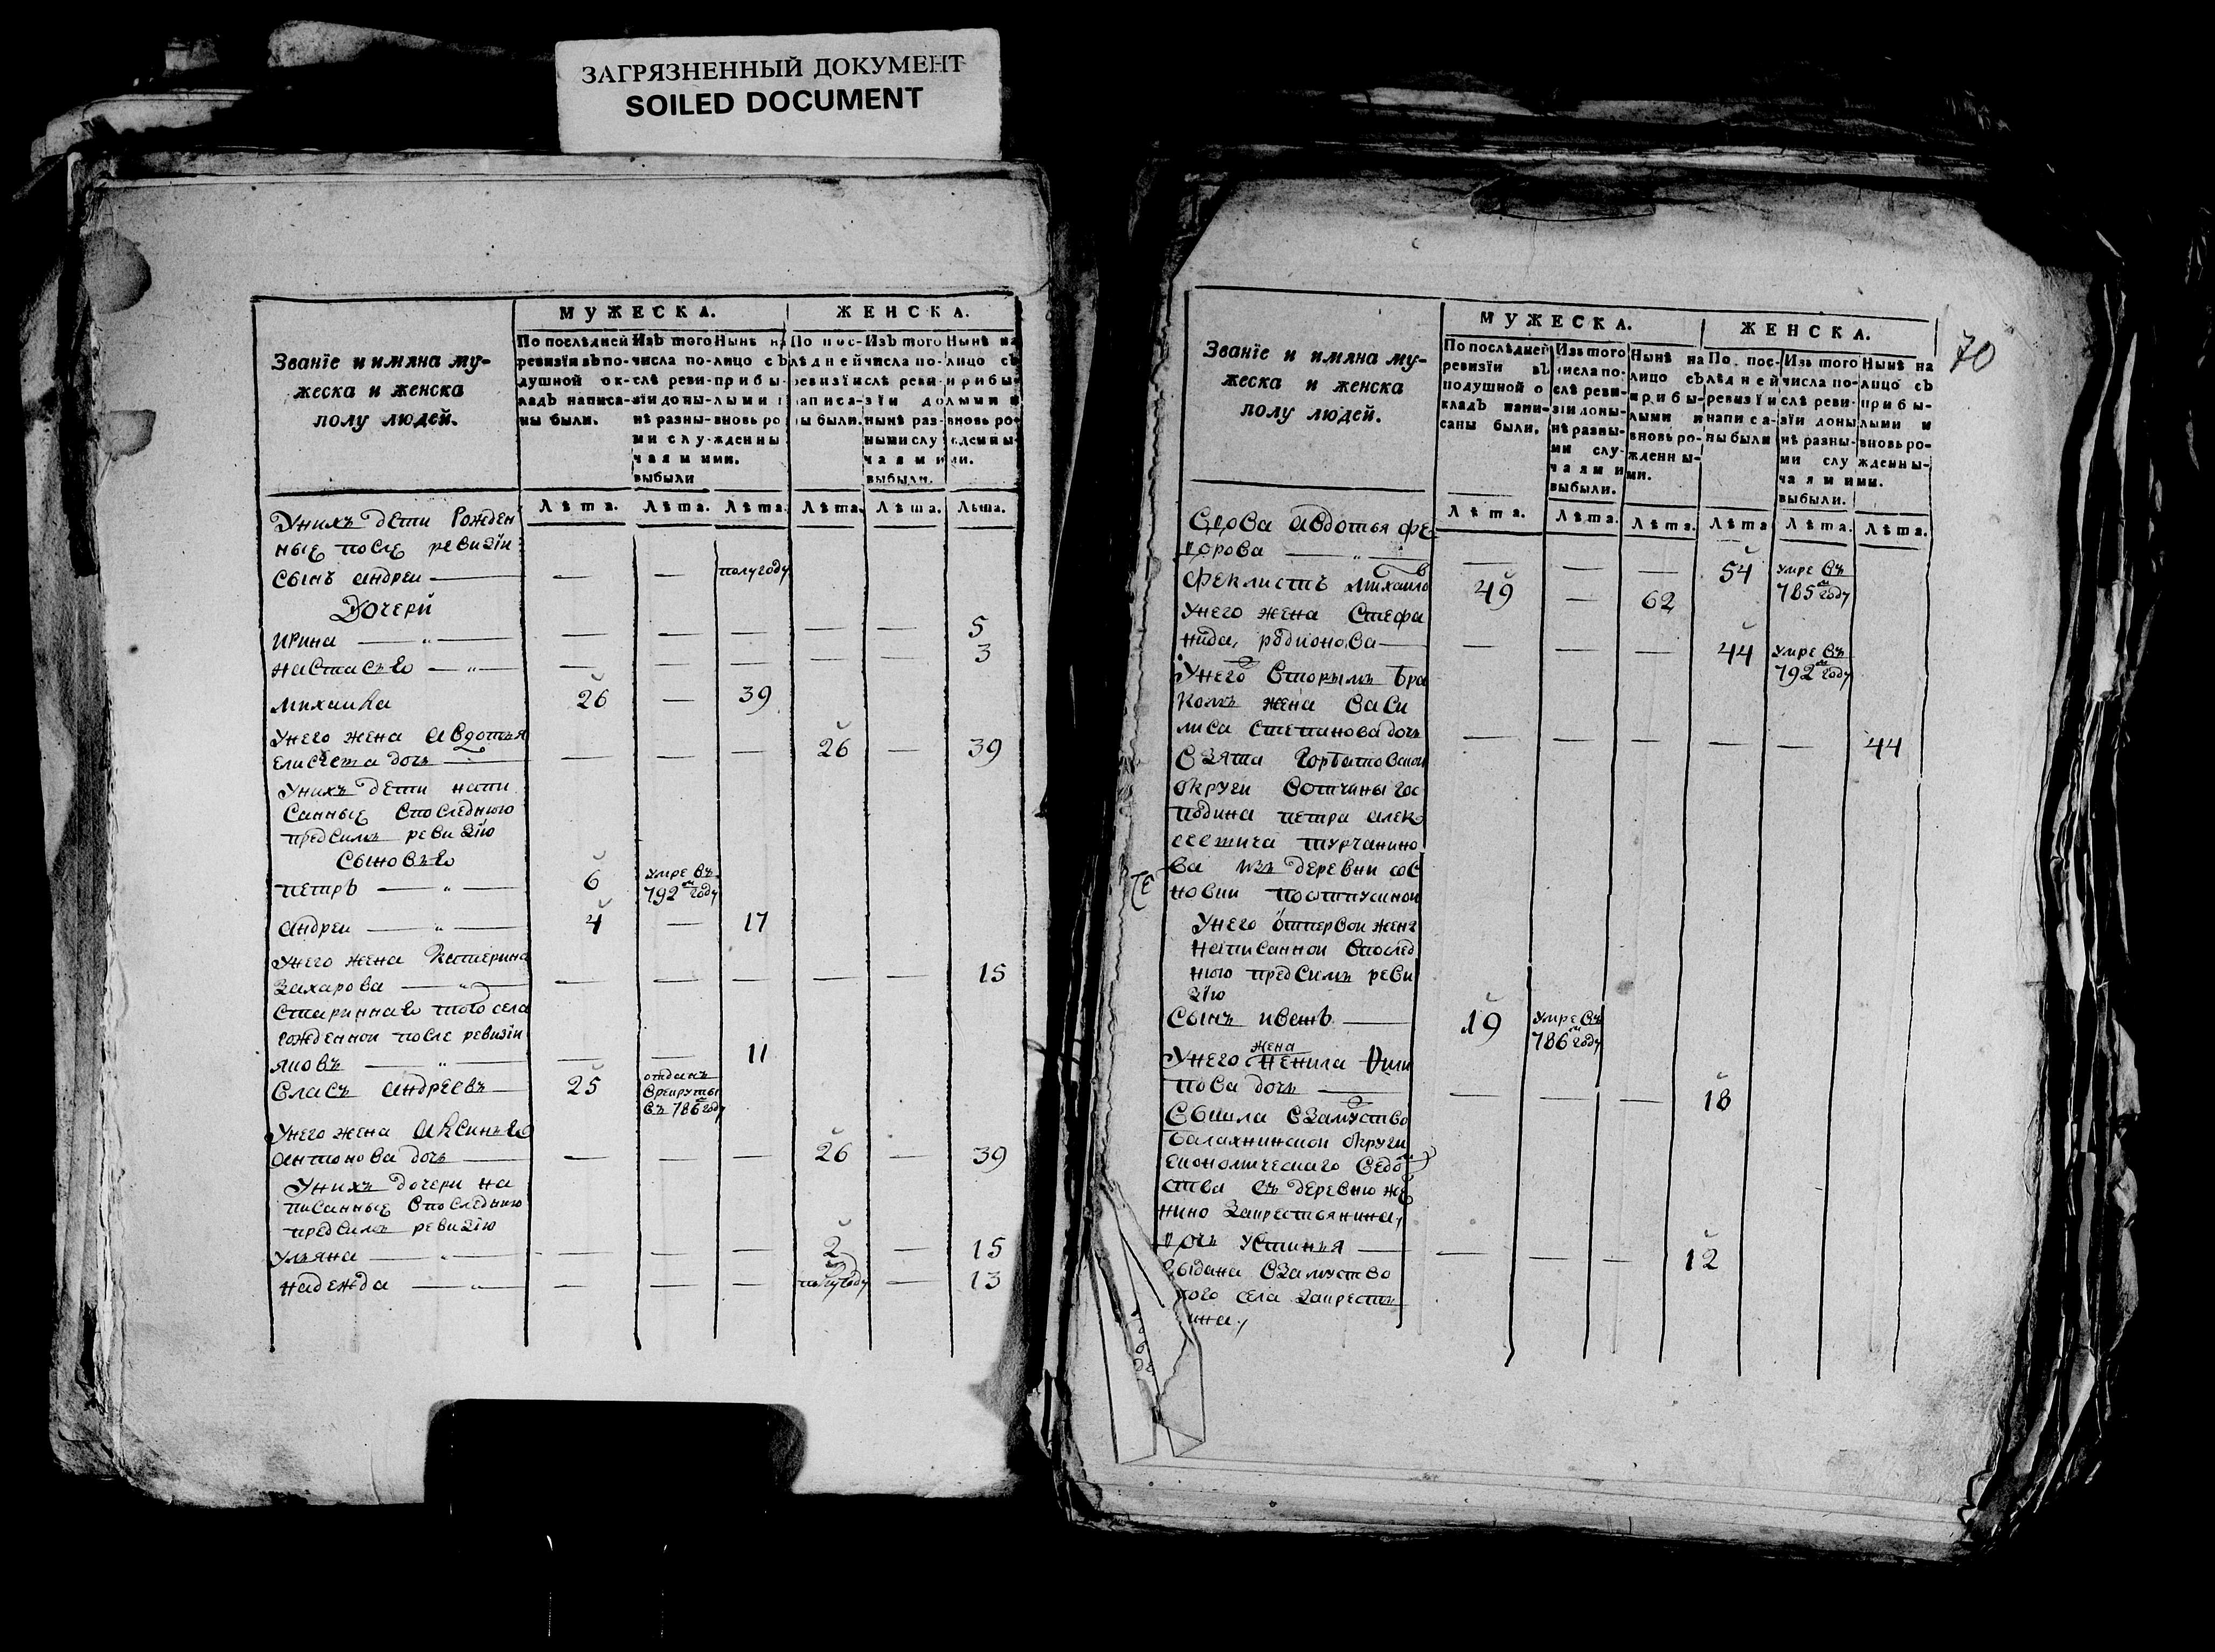 ЗАГРЯЗНЕННЫЙ ДОКУМЕНТ
SOILED DOCUMENT
Званїе и имяна му-
жеска и женска
полу людей.
МУЖЕСКА.
ЖЕНСКА.
По послѣдней ревизїи въ по-душной ок-ладъ написа-ны были.
Изъ того числа по-слѣ реви-зїи доны-нѣ разны-ми слу-чаями выбыли
Нынѣ на лицо съ прибы-лыми и вновь ро-жденны-ми.
По пос-лѣдней ревизїи написа-ны были.
Изъ того числа по-слѣ реви-зїи до нынѣ раз-ными слу-чаями выбыли.
Нынѣ на лицо съ прибы-лыми и вновь ро-жденны-ми.
Лѣта. Лѣта. Лѣта. Лѣта. Лѣта. Лѣта.
Унихъ дети рожден
ные после ревизїи
сынъ андреи — — — полугоду
Дочери
Ирина — — — — — — 5
настасья — — — — — — 3
михаила 26 — 39
Унего жена авдотья
елисеева дочь — — — 26 — 39
Унихъ дети напи
санные впоследнюю
предсимъ ревизїю
сыновья
петръ — 6 умре въ
792м году
андреи — 4 — 17
Унего жена катерина
захарова — — — — — — 15
стариннаго того села
рожденной после ревизїи
яковъ — — — 11
власъ андреевъ — 25 отданъ
врекруты
въ 786м году
Унего жена аксинья
антонова дочь — — — — 26 — 39
Унихъ дочери на
писанные впоследнюю
предсимъ ревизїю
ульяна — — — — 2 — 15
надежда — — — — полугоду — 13
70
Званїе и имяна му-
жеска и женска
полу людей.
МУЖЕСКА.
ЖЕНСКА.
По послѣдней ревизїи въ подушной о кладъ напи-саны были.
Изъ того числа по-слѣ реви-зїи доны-нѣ разны-ми слу-чаями выбыли.
Нынѣ на лицо съ прибы-лыми и вновь ро-жденны-ми.
По пос-лѣдней ревизїи написа-ны были
Изъ того числа по-слѣ реви-зїи доны нѣ разны-ми слу чаями выбыли.
Нынѣ на лицо съ прибы-лыми и вновь ро-жденны-ми.
Лѣта. Лѣта. Лѣта. Лѣта Лѣта. Лѣта.
вдова авдотья фе
дорова — — — — 54 умре въ
785м году
феклистъ михаилов 49 — 62
Унего жена стефа
нида, родионова — — — — 44 умре въ
792м году
Унего вторымъ бра
комъ жена васи
лиса степанова дочь — — — — — 44
взята горбатовской
округи вотчины гос
подина петра алек
сеевича турчанино
ва изъ деревни сос
новки
Унего отпервой жены
написанной впослед
нюю предсимъ реви
зїю
сынъ иванъ — 19 умре въ
786м году
жена
Унего ненила фили
пова дочь — — — — 18
вышла взамуство
балахнинской округи
економическаго ведом
ства въ деревню же
нино закрестьянина,
дочь устинья — — — — 12
выдана взамуство
того села закрестья
нина,